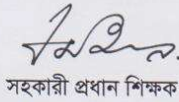 সহকারী প্রধান শিক্ষক